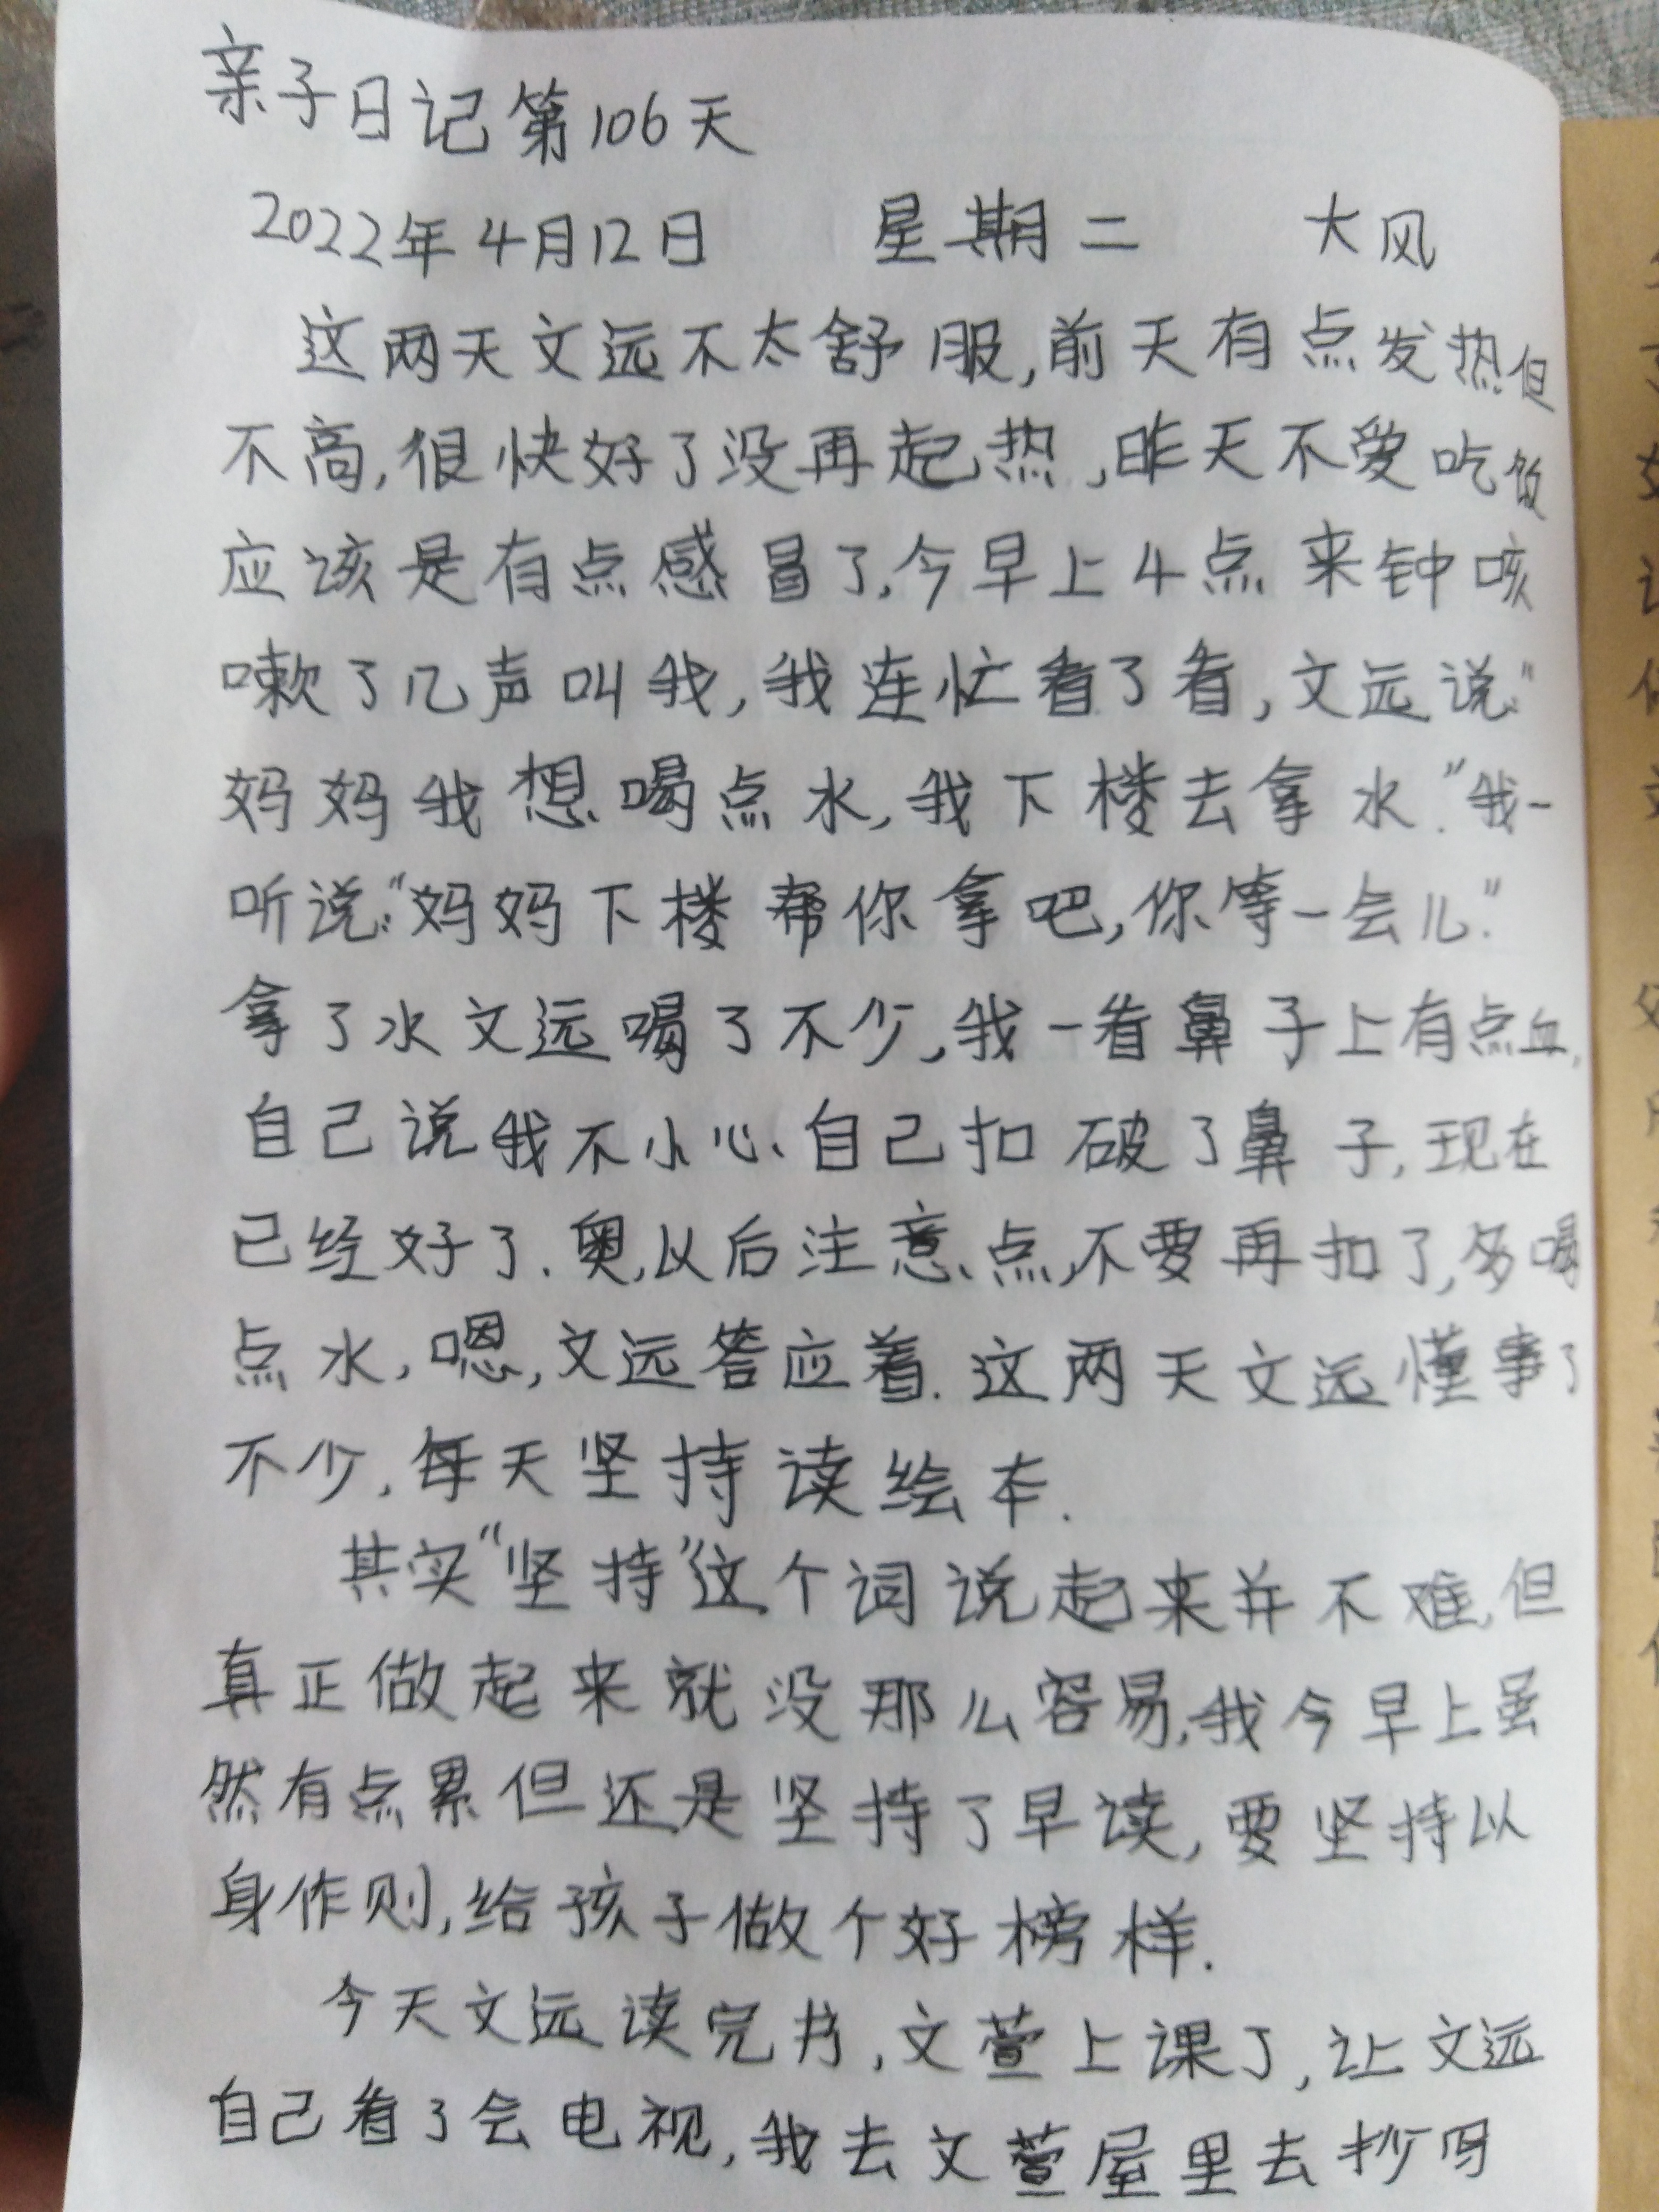 亲子日记第106天
2022年4月12日 星期二 大风
这两天文远不太舒服,前天有点发热但
不高,很快好了没再起热,昨天不爱吃饭
应该是有点感冒了,今早上4点来钟咳
嗽了几声叫我,我连忙看了看,文远说:“
妈妈我想喝点水,我下楼去拿水.”我一
听说:“妈妈下楼帮你拿吧,你等一会儿.”
拿了水文远喝了不少,我一看鼻子上有点血,
自己说我不小心、自己扣破了鼻子,现在
已经好了.奥,以后注意点,不要再扣了,多喝
点水,嗯,文远答应着.这两天文远懂事了
不少,每天坚持读绘本.
其实“坚持”这个词说起来并不难,但
真正做起来就没那么容易,我今早上虽
然有点累但还是坚持了早读,要坚持以
身作则,给孩子做个好榜样.
今天文远读完书,文萱上课了,让文远
自己看了会电视,我去文萱屋里去抄写